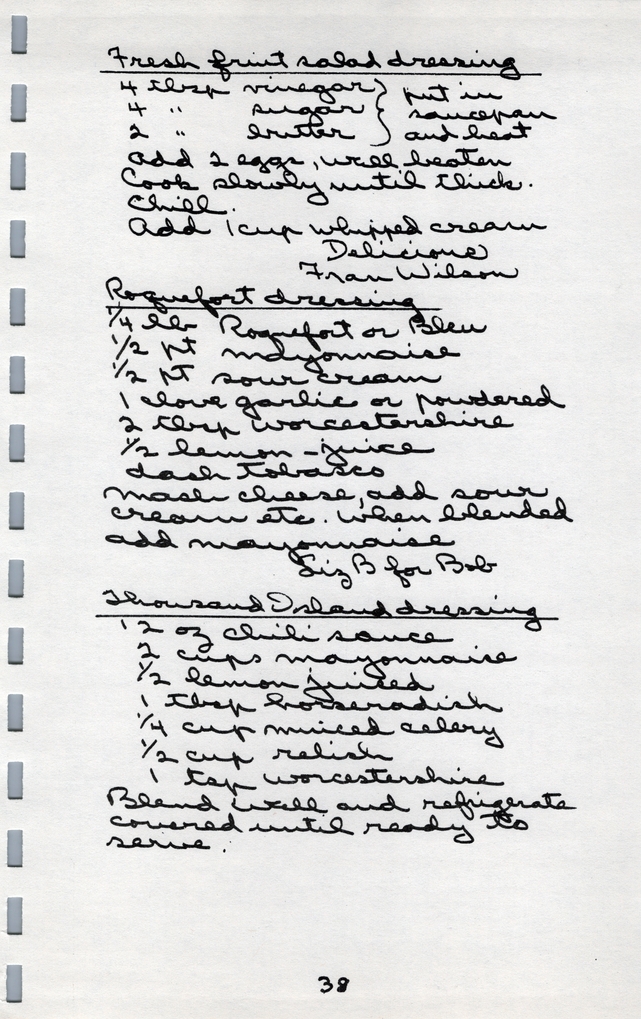 Fresh fruit salad dressing
4 tbsp vinegar } put in
4 " sugar } saucepan
2 " butter } and heat
add 2 eggs, well beaten
Cook slowly until thick.
Chill.
Add 1 cup whipped cream
Delicious
Fran Wilson
Roquefort dressing
1/4 lb Roquefort or Bleu
1/2 pt mayonnaise
1/2 pt sour cream
1 clove garlic or powdered
2 tbsp worcestershire
1/2 lemon - juice
dash tobasco
mash cheese, add sour
cream etc. When blended
add mayonnaise
Liz B for Bob
Thousand Island dressing
12 oz chili sauce
2 cups mayonnaise
1/2 lemon juiced
1 tbsp horseradish
1/4 cup minced celery
1/2 cup relish
1 tsp worcestershire
Blend well and refrigerate
covered until ready to
serve.
38